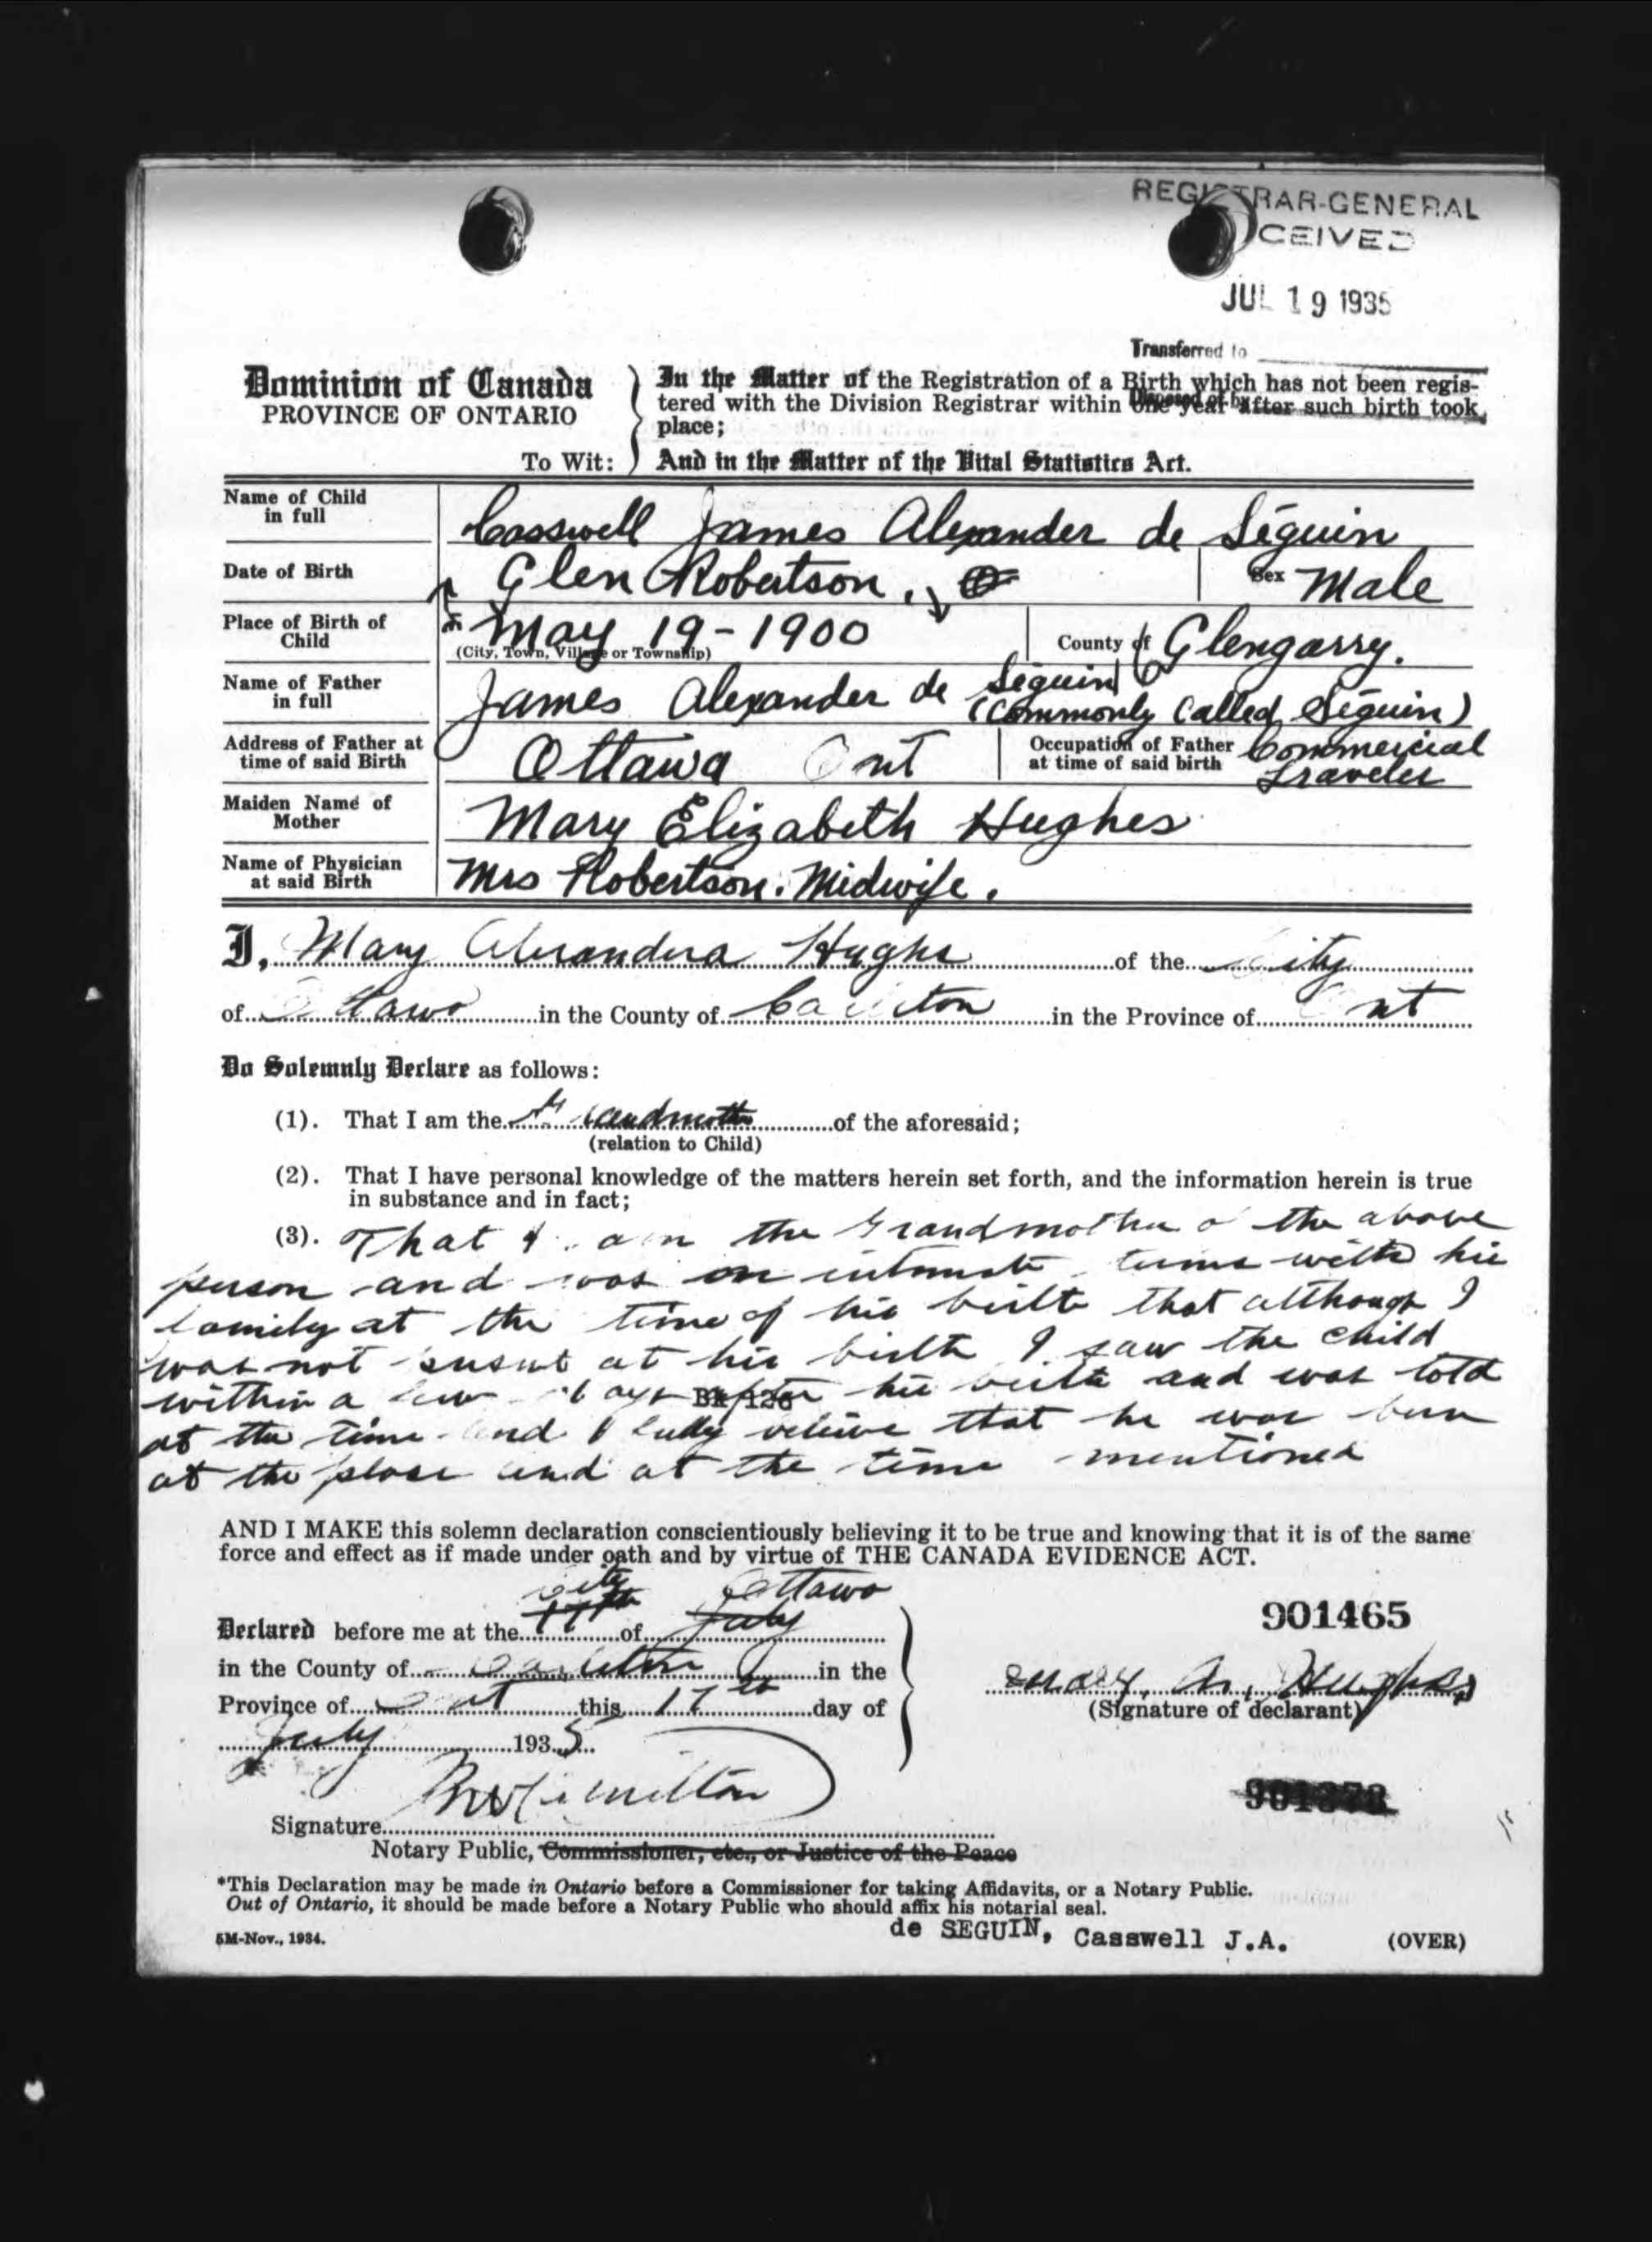 REGISTRAR-GENERAL
CEIVED
JUL 19 1935
Transferred to
Dominion of Canada
PROVINCE OF ONTARIO
To Wit:
In the Matter of the Registration of a Birth which has not been regis-
tered with the Division Registrar within one year after such birth took
place;
Disposed of by
And in the Matter of the Vital Statistics Act.
Name of Child in full Casswell James Alexander de Séguin
Date of Birth Glen Robertson. Sex Male
Place of Birth of Child May 19-1900 County of Glengarry.
(City, Town, Village or Township)
Name of Father in full James Alexander de Séguin
(Commonly Called Séguin)
Address of Father at time of said Birth Ottawa Ont Occupation of Father at time of said birth Commercial Traveler
Maiden Name of Mother Mary Elizabeth Hughes
Name of Physician at said Birth Mrs Robertson. Midwife.
I, Mary Alexandera Hughs of the City
of Ottawa in the County of Carleton in the Province of Ont
Do Solemnly Declare as follows:
(1). That I am the Grandmother of the aforesaid;
(relation to Child)
(2). That I have personal knowledge of the matters herein set forth, and the information herein is true
in substance and in fact;
(3). That I am the Grandmother of the above
person and was on intimate terms with his
family at the time of his birth that although I
was not present at his birth I saw the child
within a few days after his birth and was told
BR/126
at the time and I fully believe that he was born
at the place and at the time mentioned
AND I MAKE this solemn declaration conscientiously believing it to be true and knowing that it is of the same
force and effect as if made under oath and by virtue of THE CANADA EVIDENCE ACT.
City Ottawa
Declared before me at the 17th of July
in the County of Carleton in the
Province of Ont this 17th day of
July 1935
901465
Mary. A. Hughes
(Signature of declarant)
901373
Signature
Notary Public, Commissioner, etc., or Justice of the Peace
*This Declaration may be made in Ontario before a Commissioner for taking Affidavits, or a Notary Public.
Out of Ontario, it should be made before a Notary Public who should affix his notarial seal.
de SEGUIN, Casswell J.A.
5M-Nov., 1934.
(OVER)